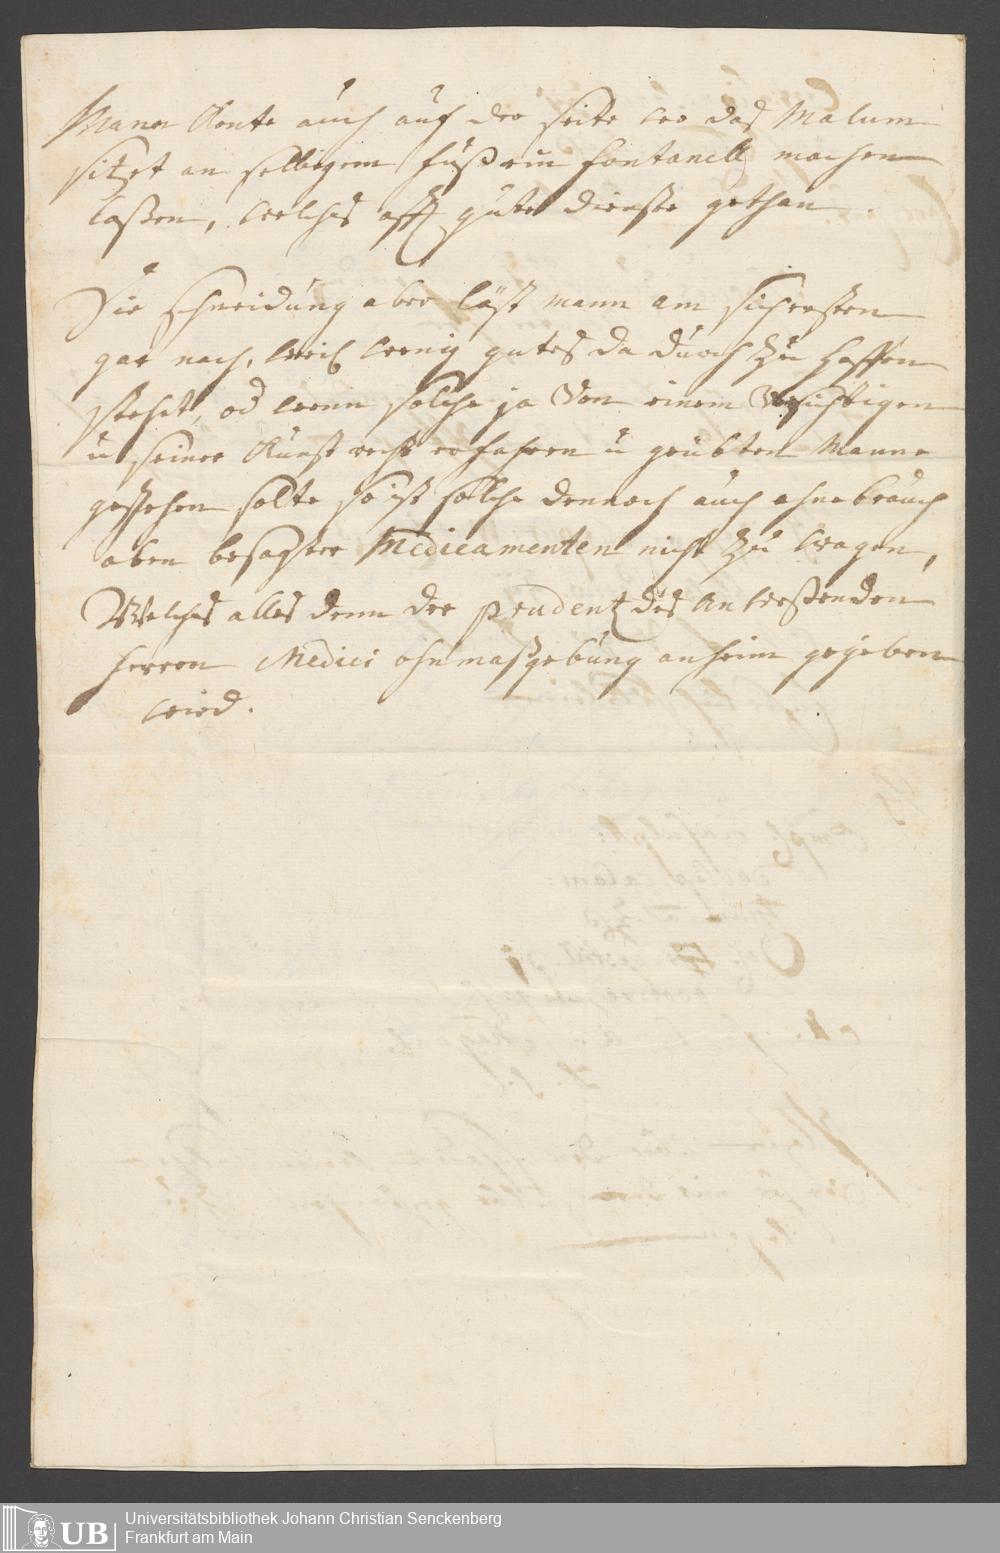 Mann könte auch auf der seite wo das Malum
sitzet an selbigem fuß ein fontanell machen
laßen, welches offt gute dienste gethan.
Die schneidung aber läst mann am sichersten
gar nach, weil wenig gutes da durch zu hoffen
stehet, od wenn solche ja von einem vorsichtigen
u seiner Kunst recht erfahren u geübten Manne
geschehen solte so ist solche dennoch auch ohne brauch
oben besagter Medicamenten nicht zu wagen,
Welches alles denn der prudentz des Anwesenden
Herren Medici ohnmaßgebung anheim gegeben
wird.
UB
Universitätsbibliothek Johann Christian Senckenberg
Frankfurt am Main